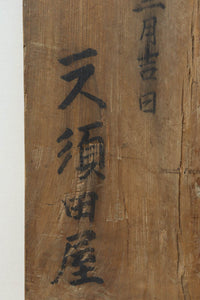 二月吉日
天須田屋